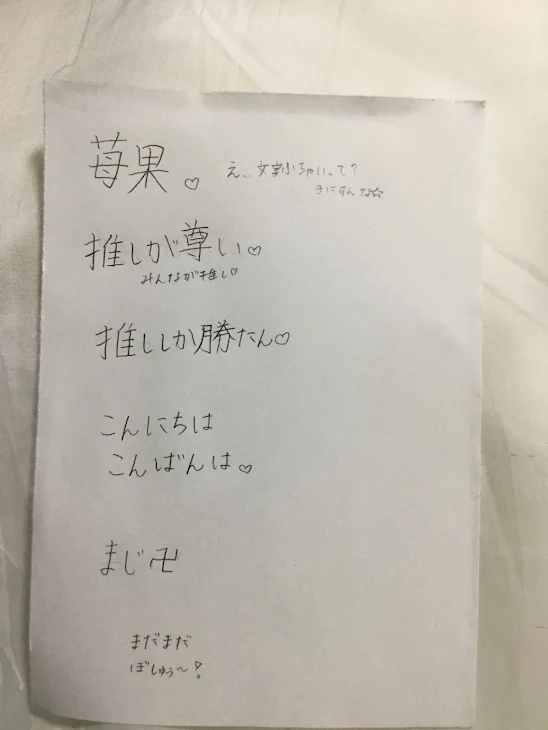 苺果♡
え、、文字小ちゃいって?
きにすんな☆
推しが尊い♡
みんなが推し♡
推ししか勝たん♡
こんにちは
こんばんは♡
まじ卍
まだまだ
ぼしゅう〜!